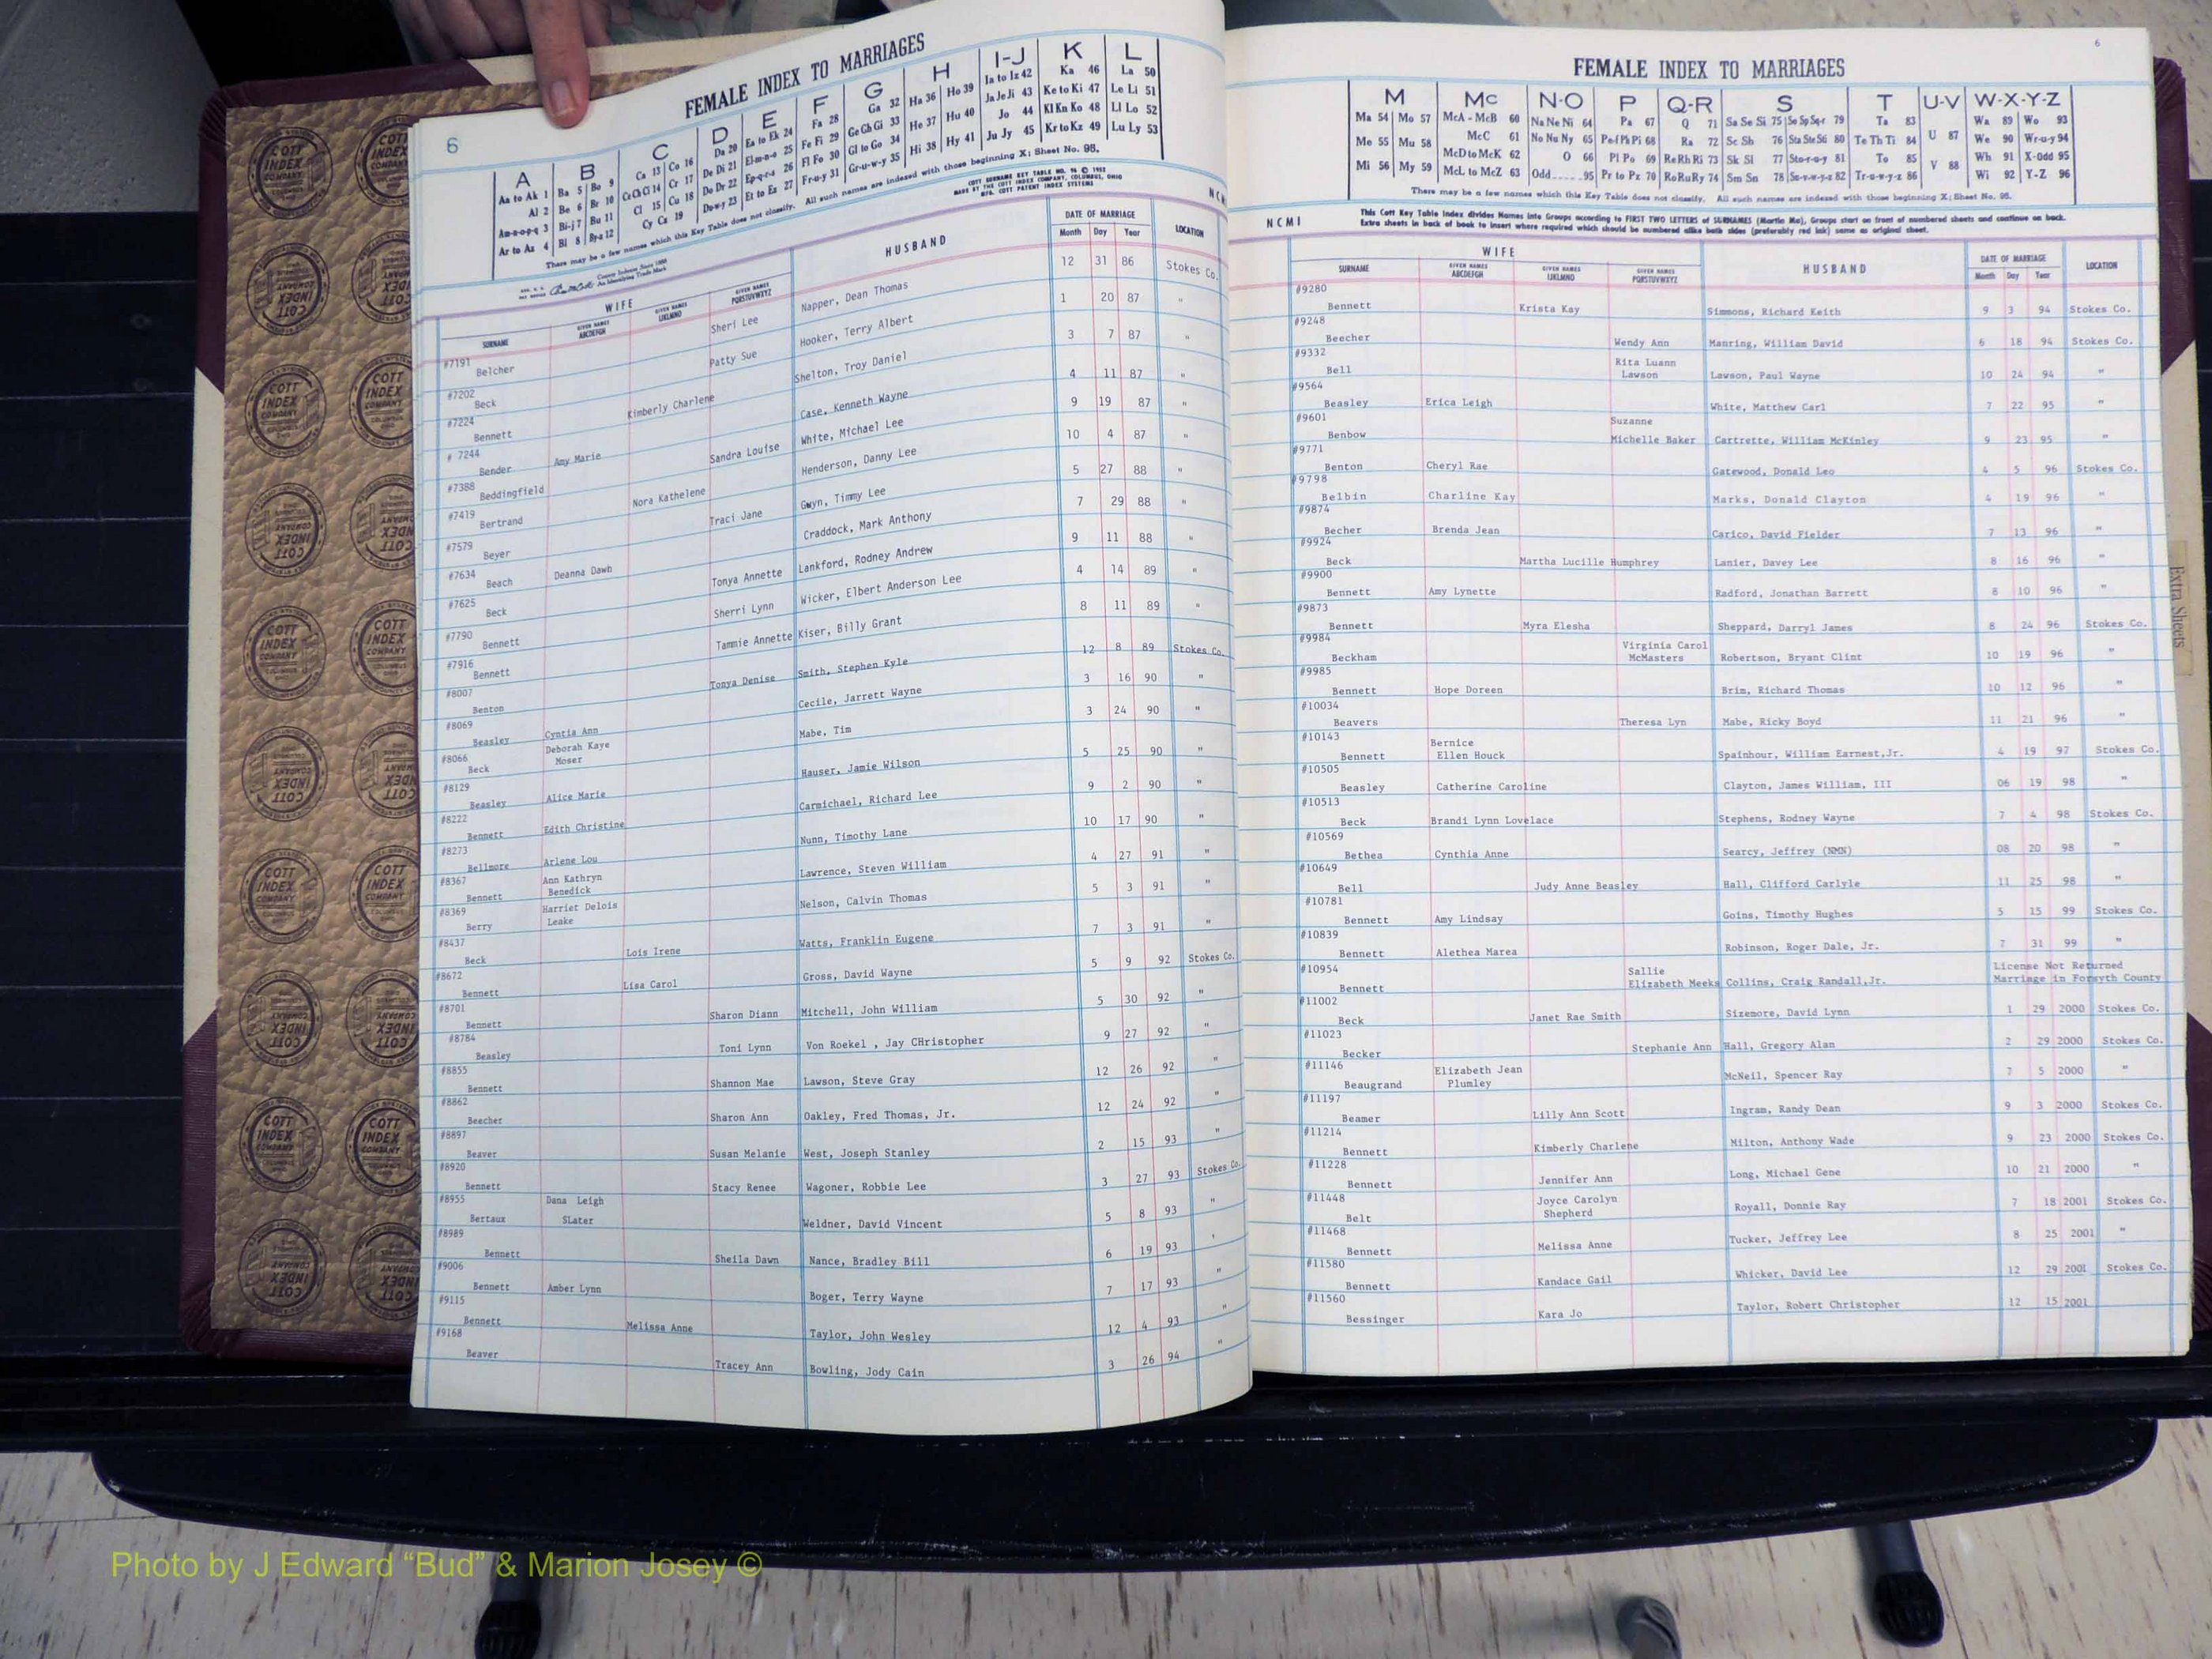 6
FEMALE INDEX TO MARRIAGES
A B C D E F G H I-J K L
Aa to Ak 1 Ba 5 Bo 9 Ca 13 Co 16 Da 20 Ea to Ek 24 Fa 28 Ga 32 Ha 36 Ho 39 Ia to Iz 42 Ka 46 La 50
Al 2 Be 6 Br 10 Ce Ch Ci 14 Cr 17 De Di 21 El-m-n-o 25 Fe Fi 29 Ge Gh Gi 33 He 37 Hu 40 Ja Je Ji 43 Ke to Ki 47 Le Li 51
Am-n-o-p-q 3 Bi-j 7 Bu 11 Cl 15 Cu 18 Do Dr 22 Ep-q-r-s 26 Fl Fo 30 Gl to Go 34 Hi 38 Hy 41 Jo 44 Kl Kn Ko 48 Ll Lo 52
Ar to Az 4 Bl 8 By-z 12 Cy Cz 19 Du-w-y 23 Et to Ez 27 Fr-u-y 31 Gr-u-w-y 35 Ju Jy 45 Kr to Kz 49 Lu Ly 53
There may be a few names which this Key Table does not classify. All such names are indexed with those beginning X; Sheet No. 98.
WIFE HUSBAND DATE OF MARRIAGE LOCATION
SURNAME GIVEN NAMES ABCDEFGH GIVEN NAMES IJKLMNO GIVEN NAMES PQRSTUVWXYZ Month Day Year
#7191 Belcher Sheri Lee Napper, Dean Thomas 12 31 86 Stokes Co.
#7202 Beck Patty Sue Hooker, Terry Albert 1 20 87 "
#7224 Bennett Kimberly Charlene Shelton, Troy Daniel 3 7 87 "
# 7244 Bender Amy Marie Case, Kenneth Wayne 4 11 87 "
#7388 Beddingfield Sandra Louise White, Michael Lee 9 19 87 "
#7419 Bertrand Nora Kathelene Henderson, Danny Lee 10 4 87 "
#7579 Beyer Traci Jane Gwyn, Timmy Lee 5 27 88 "
#7634 Beach Deanna Dawn Craddock, Mark Anthony 7 29 88 "
#7625 Beck Tonya Annette Lankford, Rodney Andrew 9 11 88 "
#7790 Bennett Sherri Lynn Wicker, Elbert Anderson Lee 4 14 89 "
#7916 Bennett Tammie Annette Kiser, Billy Grant 8 11 89 "
#8007 Benton Tonya Denise Smith, Stephen Kyle 12 8 89 Stokes Co.
#8069 Beasley Cyntia Ann Cecile, Jarrett Wayne 3 16 90 "
#8066 Beck Deborah Kaye Moser Mabe, Tim 3 24 90 "
#8129 Beasley Alice Marie Hauser, Jamie Wilson 5 25 90 "
#8222 Bennett Edith Christine Carmichael, Richard Lee 9 2 90 "
#8273 Bellmore Arlene Lou Nunn, Timothy Lane 10 17 90 "
#8367 Bennett Ann Kathryn Benedick Lawrence, Steven William 4 27 91 "
#8369 Berry Harriet Delois Leake Nelson, Calvin Thomas 5 3 91 "
#8437 Beck Lois Irene Watts, Franklin Eugene 7 3 91 "
#8672 Bennett Lisa Carol Gross, David Wayne 5 9 92 Stokes Co.
#8701 Bennett Sharon Diann Mitchell, John William 5 30 92 "
#8784 Beasley Toni Lynn Von Roekel , Jay CHristopher 9 27 92 "
#8855 Bennett Shannon Mae Lawson, Steve Gray 12 26 92 "
#8862 Beecher Sharon Ann Oakley, Fred Thomas, Jr. 12 24 92 "
#8897 Beaver Susan Melanie West, Joseph Stanley 2 15 93 "
#8920 Bennett Stacy Renee Wagoner, Robbie Lee 3 27 93 Stokes Co.
#8955 Bertaux Dana Leigh SLater Weldner, David Vincent 5 8 93 "
#8989 Bennett Sheila Dawn Nance, Bradley Bill 6 19 93 '
#9006 Bennett Amber Lynn Boger, Terry Wayne 7 17 93 "
#9115 Bennett Melissa Anne Taylor, John Wesley 12 4 93 "
#9168 Beaver Tracey Ann Bowling, Jody Cain 3 26 94 "
6
FEMALE INDEX TO MARRIAGES
M Mc N-O P Q-R S T U-V W-X-Y-Z
Ma 54 Mo 57 McA - McB 60 Na Ne Ni 64 Pa 67 Q 71 Sa Se Si 75 Se Sp Sq-r 79 Ta 83 U 87 Wa 89 Wo 93
Me 55 Mu 58 McC 61 No Nu Ny 65 Pe-f Ph Pi 68 Ra 72 Sc Sh 76 Sta Ste Sti 80 Te Th Ti 84 V 88 We 90 Wr-u-y 94
Mi 56 My 59 McD to McK 62 O 66 Pl Po 69 Re Rh Ri 73 Sk Sl 77 Sto-r-u-y 81 To 85 Wh 91 X-Odd 95
McL to McZ 63 Odd 95 Pr to Pz 70 Ro Ru Ry 74 Sm Sn 78 Su-v-w-y-z 82 Tr-u-w-y-z 86 Wi 92 Y-Z 96
There may be a few names which this Key Table does not classify. All such names are indexed with those beginning X; Sheet No. 98.
NCMI
This Cott Key Table Index divides Names into Groups according to FIRST TWO LETTERS of SURNAMES (Martin Ma), Groups start on front of numbered sheets and continue on back.
Extra sheets in back of book to insert where required which should be numbered alike both sides (preferably red ink) same as original sheet.
WIFE HUSBAND DATE OF MARRIAGE LOCATION
SURNAME GIVEN NAMES ABCDEFGH GIVEN NAMES IJKLMNO GIVEN NAMES PQRSTUVWXYZ Month Day Year
#9280 Bennett Krista Kay Simmons, Richard Keith 9 3 94 Stokes Co.
#9248 Beecher Wendy Ann Manring, William David 6 18 94 Stokes Co.
#9332 Bell Rita Luann Lawson Lawson, Paul Wayne 10 24 94 "
#9564 Beasley Erica Leigh White, Matthew Carl 7 22 95 "
#9601 Benbow Suzanne Michelle Baker Cartrette, William McKinley 9 23 95 "
#9771 Benton Cheryl Rae Gatewood, Donald Leo 4 5 96 Stokes Co.
#9798 Belbin Charline Kay Marks, Donald Clayton 4 19 96 "
#9874 Becher Brenda Jean Carico, David Fielder 7 13 96 "
#9924 Beck Martha Lucille Humphrey Lanier, Davey Lee 8 16 96 "
#9900 Bennett Amy Lynette Radford, Jonathan Barrett 8 10 96 "
#9873 Bennett Myra Elesha Sheppard, Darryl James 8 24 96 Stokes Co.
#9984 Beckham Virginia Carol McMasters Robertson, Bryant Clint 10 19 96 "
#9985 Bennett Hope Doreen Brim, Richard Thomas 10 12 96 "
#10034 Beavers Theresa Lyn Mabe, Ricky Boyd 11 21 96 "
#10143 Bennett Bernice Ellen Houck Spainhour, William Earnest,Jr. 4 19 97 Stokes Co.
#10505 Beasley Catherine Caroline Clayton, James William, III 06 19 98 "
#10513 Beck Brandi Lynn Lovelace Stephens, Rodney Wayne 7 4 98 Stokes Co.
#10569 Bethea Cynthia Anne Searcy, Jeffrey (NMN) 08 20 98 "
#10649 Bell Judy Anne Beasley Hall, Clifford Carlyle 11 25 98 "
#10781 Bennett Amy Lindsay Goins, Timothy Hughes 5 15 99 Stokes Co.
#10839 Bennett Alethea Marea Robinson, Roger Dale, Jr. 7 31 99 "
#10954 Bennett Sallie Elizabeth Meeks Collins, Craig Randall,Jr. License Not Returned Marriage in Forsyth County
#11002 Beck Janet Rae Smith Sizemore, David Lynn 1 29 2000 Stokes Co.
#11023 Becker Stephanie Ann Hall, Gregory Alan 2 29 2000 Stokes Co.
#11146 Beaugrand Elizabeth Jean Plumley McNeil, Spencer Ray 7 5 2000 "
#11197 Beamer Lilly Ann Scott Ingram, Randy Dean 9 3 2000 Stokes Co.
#11214 Bennett Kimberly Charlene Milton, Anthony Wade 9 23 2000 Stokes Co.
#11228 Bennett Jennifer Ann Long, Michael Gene 10 21 2000 "
#11448 Belt Joyce Carolyn Shepherd Royall, Donnie Ray 7 18 2001 Stokes Co.
#11468 Bennett Melissa Anne Tucker, Jeffrey Lee 8 25 2001 "
#11580 Bennett Kandace Gail Whicker, David Lee 12 29 2001 Stokes Co.
#11560 Bessinger Kara Jo Taylor, Robert Christopher 12 15 2001
Extra Sheets
COTT INDEX COMPANY
Photo by J Edward “Bud” & Marion Josey ©